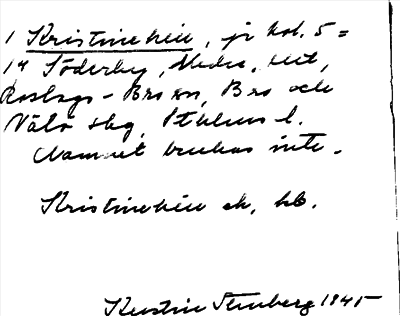 1 Kristinehill, jr kol. 5 =
14 Söderby, Medro, hlt,
Roslags-Bro sn, Bro och
Vätö skg, Sthlms l.
Namnet brukas inte.
Kristinehill ek, hb.
Kerstin Stenberg 1945